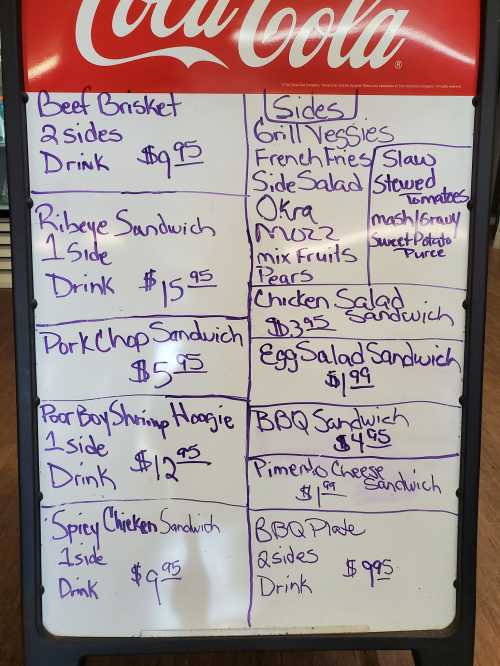 Coca-Cola
Beef Brisket
2 sides
Drink $9.95
Ribeye Sandwich
1 side
Drink $15.95
Pork Chop Sandwich
$5.95
Poor Boy Shrimp Hoogie
1 side
Drink $12.95
Spicy Chicken Sandwich
1 side
Drink $9.95
Sides
Grill Veggies
French Fries
Side Salad
Okra
Mozz
mix Fruits
Pears
Slaw
Stewed
Tomatoes
mash/Gravy
Sweet Potato
Puree
Chicken Salad
$3.95 Sandwich
Egg Salad Sandwich
$1.99
BBQ Sandwich
$4.95
Pimento Cheese
$1.99 Sandwich
BBQ Plate
2 sides
Drink $9.95